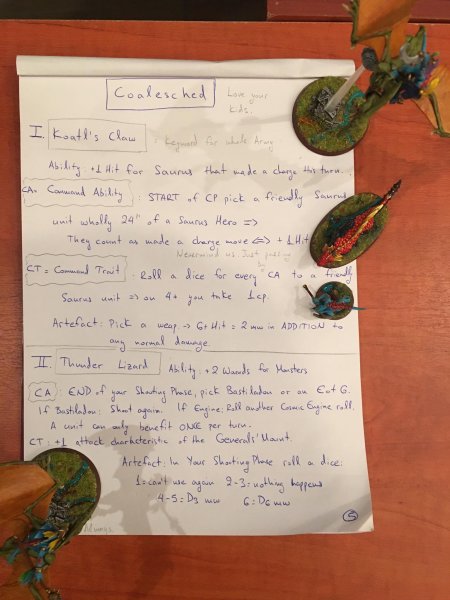 Coalesched
Love your
kids.
I. Koatl's Claw : Keyword for whole Army
Ability: +1 Hit for Saurus that made a charge this turn.
CA = Command Ability : START of CP pick a friendly Saurus
unit wholly 24" of a Saurus Hero =>
They count as made a charge move <=> +1 Hit
Nevermind us. Just passing
by
CT = Command Trait : Roll a dice for every CA to a friendly
Saurus unit => on 4+ you take 1cp.
Artefact: Pick a weap. → 6+ Hit = 2 mw in ADDITION to
any normal damage.
II. Thunder Lizard Ability: +2 Wounds for Monsters
CA : END of your Shooting Phase, pick Bastiladon or an EotG.
If Bastiladon: Shoot again. If Engine: Roll another Cosmic Engine roll.
A unit can only benefit ONCE per turn.
CT: +1 attack charkteristic of the Generals' Mount.
Artefact: In Your Shooting Phase roll a dice:
1 = can't use again 2-3 = nothing happens
4-5 = D3 mw 6 = D6 mw
Always.
5